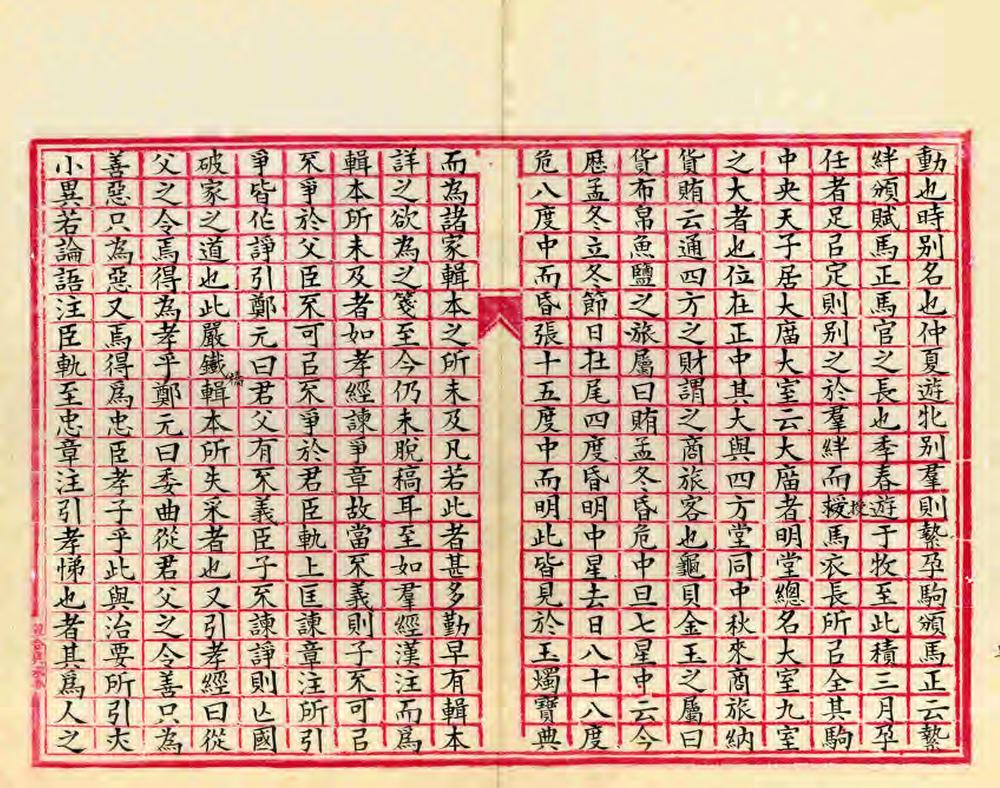 動也時别名也仲夏遊牝别羣則縶孕駒頒馬正云縶
絆頒賦馬正馬官之長也季春遊于牧至此積三月孕
任者足㠯定則别之於羣絆而授馬衣長所㠯全其駒
中央天子居大𢊍大室云大𢊍者明堂總名大室九室
之大者也位在正中其大與四方堂同中秋來商旅納
貨賄云通四方之財謂之商旅客也龜貝金玉之屬曰
貨布帛魚鹽之旅屬曰賄孟冬昏危中旦七星中云今
歷孟冬立冬節日在尾四度昏明中星去日八十八度
危八度中而昏張十五度中而明此皆見於玉燭寶典
而為諸家輯本之所未及凡若此者甚多勤早有輯本
詳之欲為之箋至今仍未脫稿耳至如羣經漢注而爲
輯本所未及者如孝經諫爭章故當不義則子不可㠯
不爭於父臣不可㠯不爭於君臣軌上匡諫章注所引
爭皆作諍引鄭元曰君父有不義臣子不諫諍則亾國
破家之道也此嚴鐵橋輯本所失采者也又引孝經曰從
父之令焉得為孝乎鄭元曰委曲從君父之令善只為
善惡只為惡又焉得爲忠臣孝子乎此與治要所引夾
小異若論語注臣軌至忠章注引孝悌也者其爲人之